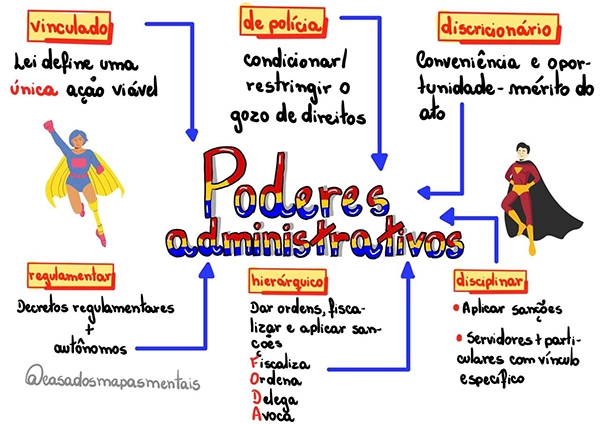 vinculado
Lei define uma
única ação viável
de polícia
condicionar/
restringir o
gozo de direitos
discricionário
Conveniência e opor-
tunidade - mérito do
ato
Poderes
administrativos
regulamentar
Decretos regulamentares
+
autônomos
@casadosmapasmentais
hierárquico
Dar ordens, fisca-
lizar e aplicar san-
ções
Fiscaliza
Ordena
Delega
Avoca
disciplinar
• Aplicar sanções
• Servidores + parti-
culares com vínculo
específico